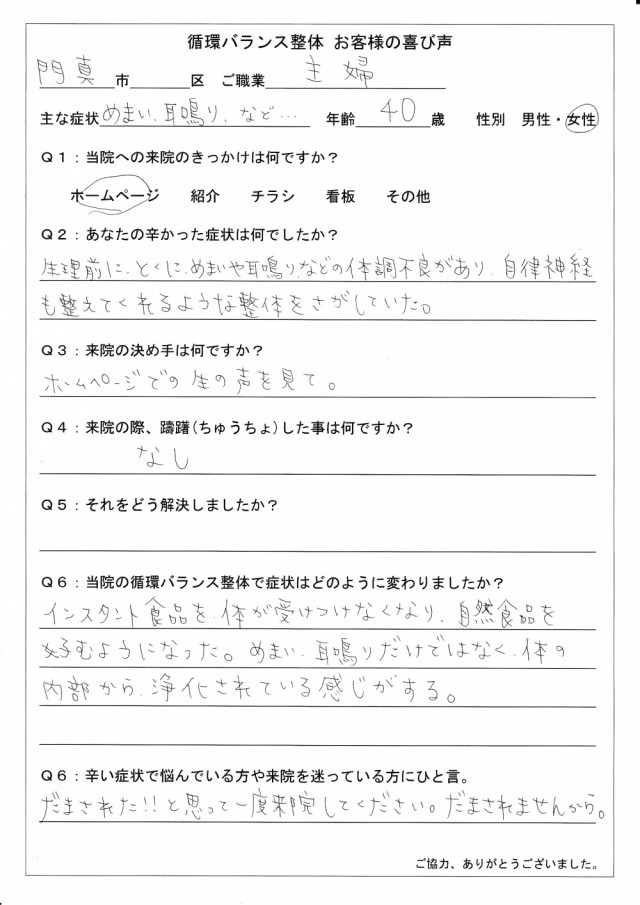 循環バランス整体 お客様の喜び声
門真市 区 ご職業 主婦
主な症状 めまい、耳鳴り、など… 年齢 40 歳 性別 男性・女性
Q1:当院への来院のきっかけは何ですか?
ホームページ 紹介 チラシ 看板 その他
Q2:あなたの辛かった症状は何でしたか?
生理前に、とくに、めまいや耳鳴り、などの体調不良があり、自律神経
も整えてくれるような整体をさがしていた。
Q3:来院の決め手は何ですか?
ホームページでの生の声を見て。
Q4:来院の際、躊躇(ちゅうちょ)した事は何ですか?
なし
Q5:それをどう解決しましたか?
Q6:当院の循環バランス整体で症状はどのように変わりましたか?
インスタント食品を、体が受けつけなくなり、自然食品を
好むようになった。めまい、耳鳴りだけではなく、体の
内部から、浄化されている感じがする。
Q6:辛い症状で悩んでいる方や来院を迷っている方にひと言。
だまされた!!と思って一度来院してください。だまされませんから。
ご協力、ありがとうございました。